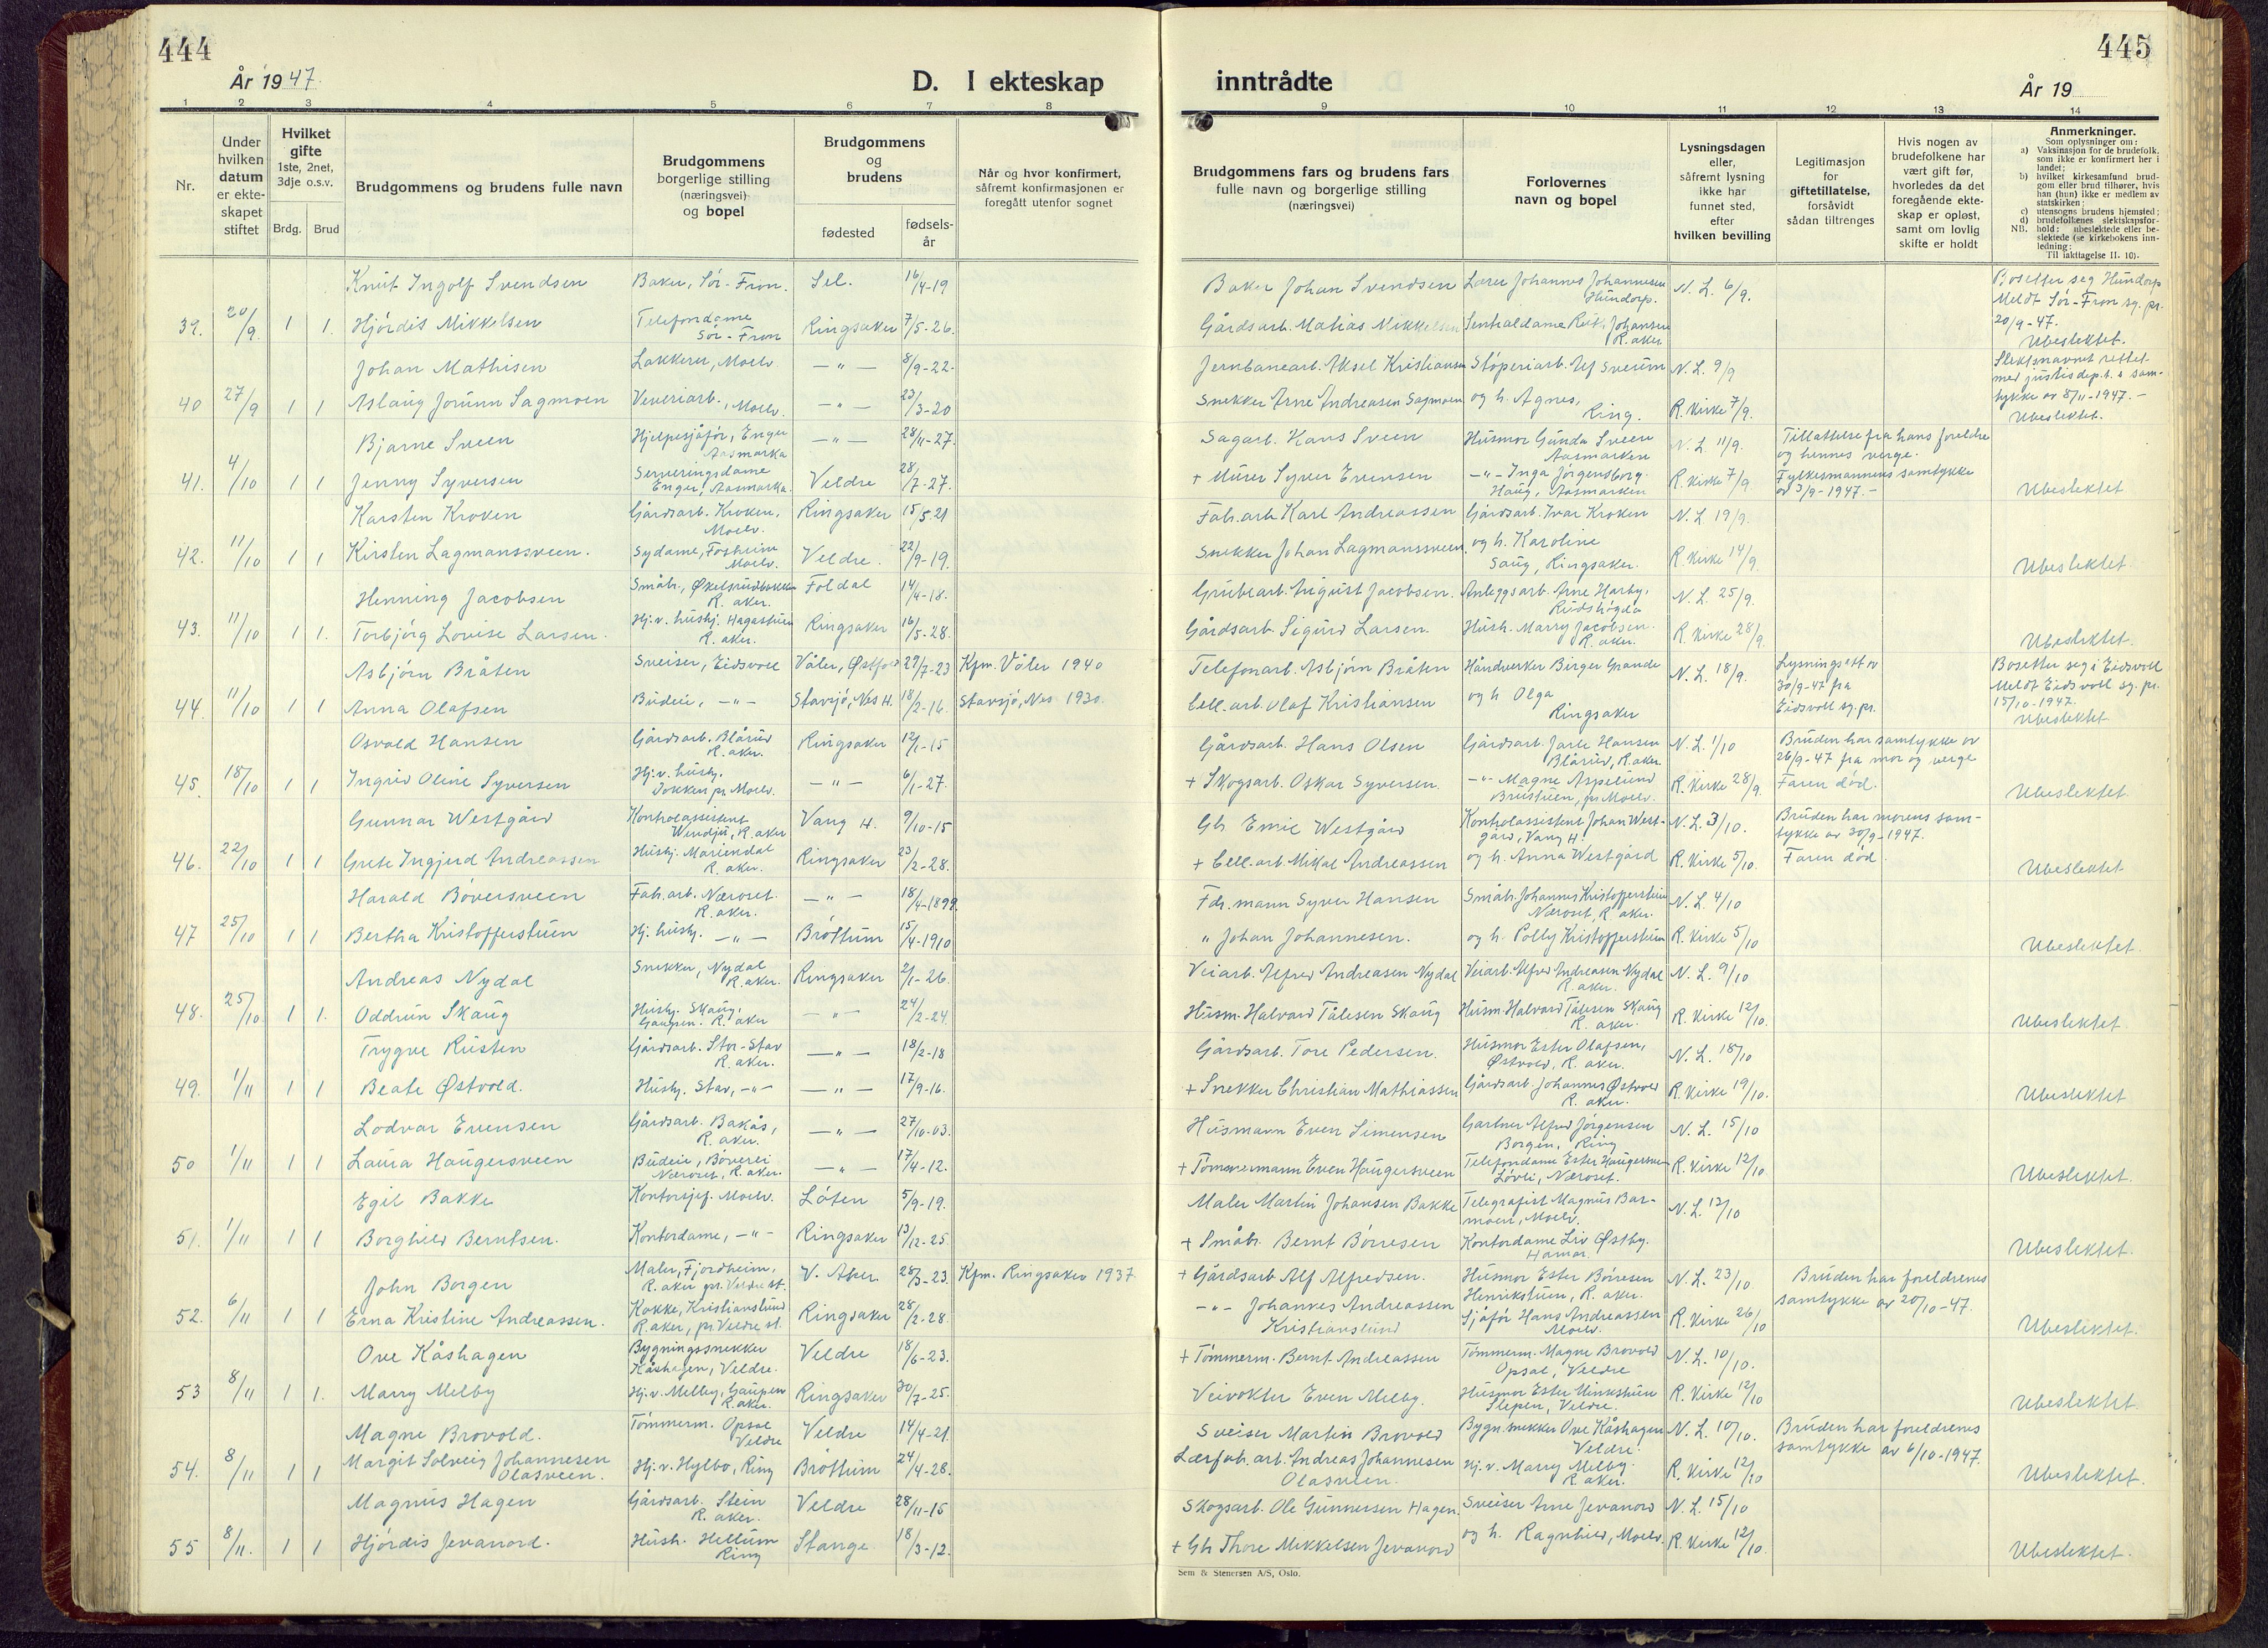 444
År 1947.
D. I ekteskap
inntrådte
445
År 19
1 2 3 4 5 6 7 8
9 10 11 12 13 14
Nr.
Under hvilken datum er ekte-skapet stiftet
Hvilket gifte 1ste, 2net, 3dje o.s.v.
Brdg. Brud
Brudgommens og brudens fulle navn
Brudgommens borgerlige stilling (næringsvei) og bopel
Brudgommens og brudens
fødested
fødsels-år
Når og hvor konfirmert, såfremt konfirmasjonen er foregått utenfor sognet
Brudgommens fars og brudens fars fulle navn og borgerlige stilling (næringsvei)
Forlovernes navn og bopel
Lysningsdagen eller, såfremt lysning ikke har funnet sted, efter hvilken bevilling
Legitimasjon for giftetillatelse, forsåvidt sådan tiltrenges
Hvis nogen av brudefolkene har vært gift før, hvorledes da det foregående ekte-skap er opløst, samt om lovlig skifte er holdt
Anmerkninger.
Som oplysninger om:
a) Vaksinasjon for de brudefolk, som ikke er konfirmert her i landet;
b) hvilket kirkesamfund brud-gom eller brud tilhører, hvis han (hun) ikke er medlem av statskirken;
c) utensogns brudens hjemsted;
d) brudefolkenes slektskapsfor-hold: ubeslektede eller be-slektede (se kirkebokens inn-ledning:
NB. Til iakttagelse II. 10).
Knut Ingolf Svendsen Baker, Sør-Fron. Sel. 16/4-19 Baker Johan Svendsen Lærer Johannes Johannesen Hundorp. N. L. 6/9. Bosetter seg Hundorp Meldt Sør-Fron sg. pr. 20/9-47.
39. 20/9. 1 1. Hjördis Mikkelsen Telefondame Sør-Fron Ringsaker 7/5-26. Gårdsarb. Matias Mikkelsen Sentraldame Ruth Johansen R. aker Ubeslektet.
Johan Mathisen Lakkerer, Moelv. —"— 8/9-22. Jernbanearb. Aksel Kristiansen Støperiarb. Alf Sveum N. L. 9/9 Slektsnavnet rettet med justisdep.t.s sam-tykke av 8/11-1947.-
40 27/9 1 1 Aslaug Jorunn Sagmoen Veveriarb., Moelv. —"— 23/3-20 Snekker Arne Andreasen Sagmoen og h. Agnes, Ring. R. Kirke 7/9. Ubeslektet.
Bjarne Sveen Hjelpesjåfør, Enger Aasmarka —"— 28/11-27. Sagarb. Hans Sveen Husmor Gunda Sveen Aasmarken N. L. 11/9. Tillattelse fra hans foreldre og hennes verge.
41. 4/10 1 1 Jenny Syversen Serveringsdame Enger, Aasmarka. Veldre 28/7-27. + Murer Syver Evensen —"— Inga Jörgensborg Haug, Aasmarken R. Kirke 7/9. Fylkesmannens samtykke av 3/9-1947.- Ubeslektet
Karsten Kroken Gårdsarb. Kroken, Moelv. Ringsaker 15/5 21 Fab.arb. Karl Andreassen Gårdsarb. Ivar Kroken N. L 19/9.
42. 11/10 1 1 Kirsten Lagmanssveen. Sydame, Fosheim Moelv. Veldre. 22/9-19. Snekker Johan Lagmanssveen og h. Karoline Saug, Ringsaker. R. Kirke 14/9. Ubeslektet.
Henning Jacobsen Småbr., R. aker. Foldal 14/4-18. Grubearb. August Jacobsen. Anleggsarb. Arne Harby, Rudshögda N. L. 25/9.
43. 11/10 1 1. Torbjörg Lovise Larsen. Hj. v. husbj. Hagastuen R. aker. Ringsaker 16/5-28. Gårdsarb. Sigurd Larsen. Hush. Marry Jacobsen. R. aker. R. Kirke 28/9. Ubeslektet.
Asbjørn Bråten Sveiser, Eidsvoll Våler, Østfold 29/7-23 Kfm. Våler 1940 Telefonarb. Asbjørn Bråten Håndverker Birger Grande N. L. 18/9. Lysningsatt av 30/9-47 fra Eidsvoll sg. pr. Bosetter seg i Eidsvoll Meldt Eidsvoll sg. pr. 15/10-1947.
44. 11/10 1 1 Anna Olafsen Budeie, —"— Stavsjø, Nes H. 18/2-16. Stavsjø, Nes 1930. Cell.arb. Olaf Kristiansen og h Olga Ringsaker Ubeslektet
Osvald Hansen Gårdsarb. Blårud R. aker. Ringsaker 12/1-15 Gårdsarb. Hans Olsen Gårdsarb. Jarle Hansen Blårud, R. aker N. L. 1/10 Bruden har samtykke av 26/9-47 fra mor og verge
45. 18/10 1 1 Ingrid Oline Syversen Hj. v. husbj. Dokken pr Moelv. —"— 6/1-27. + Skogsarb. Oskar Syversen. —"— Magne Aspelund Brustuen, pr Moelv. R. Kirke 28/9. Faren död. Ubeslektet.
Gunnar Westgård Kontrolassistent Wendju, R. aker Vang H. 9/10-15 Gbr. Emil Westgård Kontrolassistent Johan West-gård, Vang H. N. L. 3/10. Bruden har morens sam-tykke av 30/9-1947.
46. 22/10 1 1 Grete Ingjerd Andreassen Husbj. Mariendal R. aker. Ringsaker 23/2-28. + Cell.arb. Mikal Andreassen og h. Anna Westgård R. Kirke 5/10. Faren död. Ubeslektet
Harald Böversveen Fab.arb. Næroset. R. aker. —"— 18/4-1899. Fdr. mann Syver Hansen Småbr. Johannes Kristofferstuen Næroset, R. aker. N. L. 4/10
47 25/10 1 1 Bertha Kristofferstuen Hj. husbj. —"— Bröttum 15/4-1910 " Johan Johannesen. og h. Polly Kristofferstuen R. Kirke 5/10 Ubeslektet.
Andreas Nydal Snekker, Nydal R.aker. Ringsaker 2/1-26. Veiarb. Alfred Andreasen Nydal Veiarb. Alfred Andreasen Nydal R. aker. N. L. 9/10
48. 25/10. 1 1. Oddrun Skaug Husbj. Skaug, Gaupen. R. aker —"— 24/2-24. Husm. Halvard Tålesen Skaug Husm. Halvard Tålesen Skaug R. aker. R. Kirke 12/10. Ubeslektet.
Trygve Rusten Gårdsarb. Stor-Stav R. aker. —"— 18/2-18 Gårdsarb. Tore Pedersen. Husmor Ester Olafsen, Østvold, R. aker. N. L. 18/10
49. 1/11 1 1 Beate Østvold. Husbj. Stav, —"— —"— 17/9-16. + Snekker Christian Mathiassen Gårdsarb. Johannes Østvold R. aker. R. Kirke 19/10. Ubeslektet
Lodvar Evensen Gårdsarb. Bakås, R. aker. —"— 27/10-03. Husmann Even Simensen Gartner Alfred Jörgensen Borgen, Ring N. L. 15/10
50 1/11 1 1 Laura Haugersveen Budeie, Böverli Næroset, R. aker. —"— 17/4-12. + Tömmermann Even Haugersveen Telefondame Ester Haugersveen Lövli, Næroset. R. Kirke 12/10 Ubeslektet.
Egil Bakke Kontorsjef. Moelv. Löten 5/9-19. Maler Martin Johansen Bakke Telegrafist Magnus Bar-moen, Moelv. N. L. 12/10
51. 1/11 1 1 Borghild Berntsen. Kontordame, —"— Ringsaker 13/12-25 + Småbr. Bernt Börresen Kontordame Liv Østby. Hamar. Ubeslektet.
John Borgen Maler, Fjordheim, R. aker pr. Veldre st. V. Aker. 28/3-23. Kfm. Ringsaker 1937. + Gårdsarb Alf Alfredsen. Husmor Ester Börresen Henrikstuen, R. aker. N. L. 23/10. Bruden har foreldrenes samtykke av 20/10-47.
52. 6/11 1 1 Erna Kristine Andreassen. Kokke, Kristianslund R. aker, pr. Veldre st. Ringsaker 28/2-28. —"— Johannes Andreassen Kristianslund Sjåför Hans Andreassen Moelv. R. Kirke 26/10 Ubeslektet.
Ove Kåshagen Bygningssnekker Kåshagen, Veldre. Veldre 18/6-23. + Tömmerm. Bernt Andreassen Tömmerm. Magne Brovold Opsal, Veldre N. L. 10/10.
53 8/11 1 1. Marry Melby Hj. v. Melby, Gaupen R. aker. Ringsaker 30/7-25. Veivokter Even Melby. Husmor Ester Slepen, Veldre. R. Kirke 12/10 Ubeslektet.
Magne Brovold. Tömmerm. Opsal Veldre Veldre 14/4-21. Sveiser Martin Brovold Bygn.snekker Ove Kåshagen Veldre. N. L. 10/10. Bruden har foreldrenes samtykke av 6/10-1947.
54. 8/11 1 1 Margit Solveig Johannesen Olasveen. Hj. v. Hylbo, Ring Bröttum 24/4-28. Lærfab. arb. Andreas Johannesen Olasveen. Hj. v. Marry Melby. R. aker. R. Kirke 12/10 Ubeslektet.
Magnus Hagen Gårdsarb. Stein R. aker. Veldre 28/11-15 Skogsarb. Ole Gunnersen Hagen. Sveiser Arne Jevanord N. L. 15/10
55 8/11. 1 1 Hjördis Jevanord. Hush. Hellum Ring Stange. 18/3-12. + Gbr Thore Mikkelsen Jevanord og h. Ragnhild, Moelv. R. Kirke 12/10. Ubeslektet.
Sem & Stenersen A/S, Oslo.